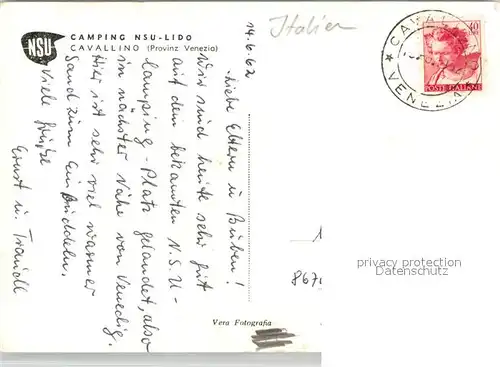 NSU
CAMPING NSU-LIDO
CAVALLINO (Provinz Venezia)
14.6.62
Liebe Eltern u. Buben!
Wir sind heute sehr gut
auf dem bekannten N.S.U-
Camping-Platz gelandet, also
in nächster Nähe von Venedig.
Hier ist sehr viel warmer
Sand zum Einbuddeln.
Viele Grüße
Ernst u. Traudl
Vera Fotografia
Italien
40
POSTE ITALIANE
VENEZIA
867
privatsammlung
Datenschutz